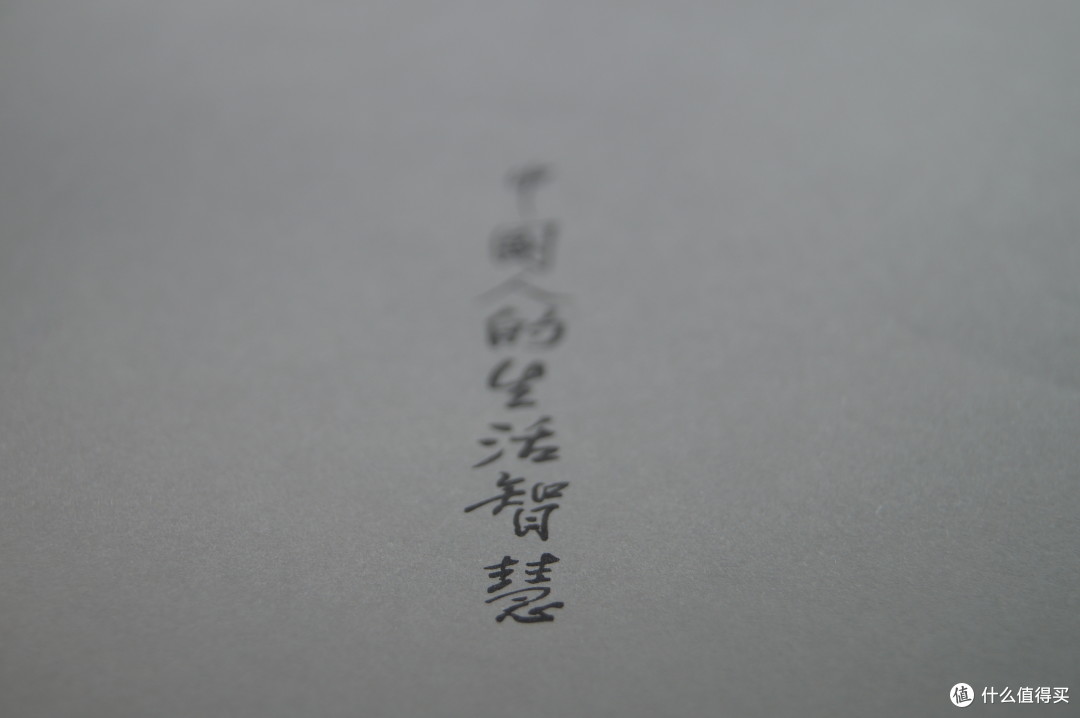 中国人的生活智慧
值 什么值得买